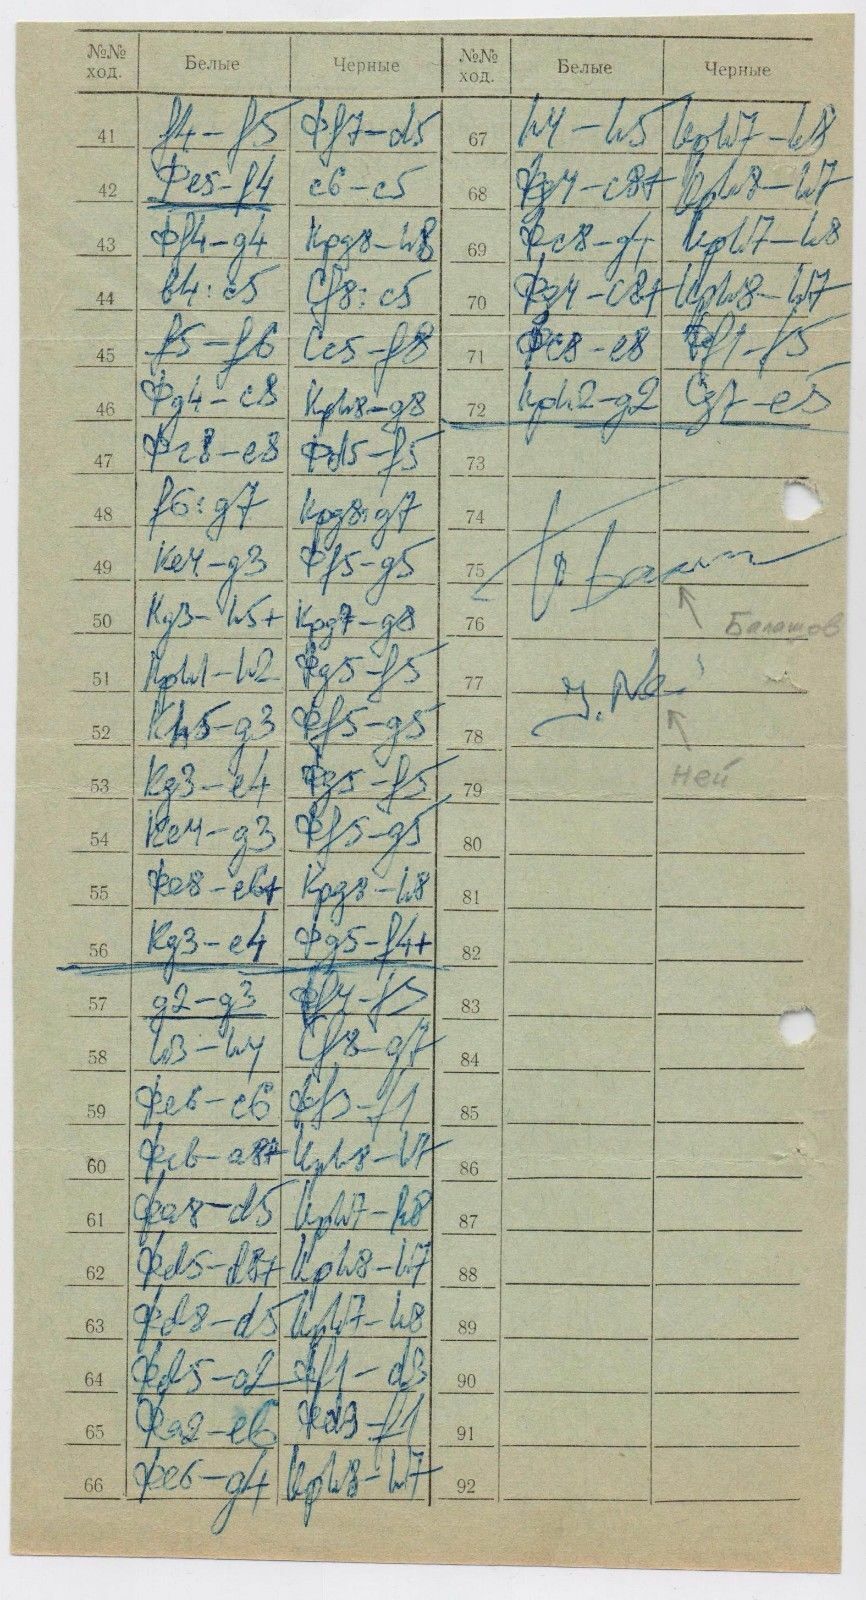 №№ ход. Белые Черные
41 f4–f5 Фf7–d5
42 Фe5–f4 c6–c5
43 Фf4–g4 Крg8–h8
44 в4:c5 Сf8:c5
45 f5–f6 Сc5–f8
46 Фg4–c8 Крh8–g8
47 Фc8–e8 Фd5–f5
48 f6:g7 Крg8:g7
49 Кe4–g3 Фf5–g5
50 Кg3–h5+ Крg7–g8
51 Крh1–h2 Фg5–f5
52 Кh5–g3 Фf5–g5
53 Кg3–e4 Фg5–f5
54 Кe4–g3 Фf5–g5
55 Фe8–e6+ Крg8–h8
56 Кg3–e4 Фg5–f4+
57 g2–g3 Фf4–f3
58 h3–h4 Сf8–g7
59 Фe6–c6 Фf3–f1
60 Фc6–a8+ Крh8–h7
61 Фa8–d5 Крh7–h8
62 Фd5–d8+ Крh8–h7
63 Фd8–d5 Крh7–h8
64 Фd5–a2 Фf1–d3
65 Фa2–e6 Фd3–f1
66 Фe6–g4 Крh8–h7
№№ ход. Белые Черные
67 h4–h5 Крh7–h8
68 Фg4–c8+ Крh8–h7
69 Фc8–g4 Крh7–h8
70 Фg4–c8+ Крh8–h7
71 Фc8–e8 Фf1–f5
72 Крh2–g2 Сg7–e5
73
74
75
76
Балашов
77
78
Ней
79
80
81
82
83
84
85
86
87
88
89
90
91
92